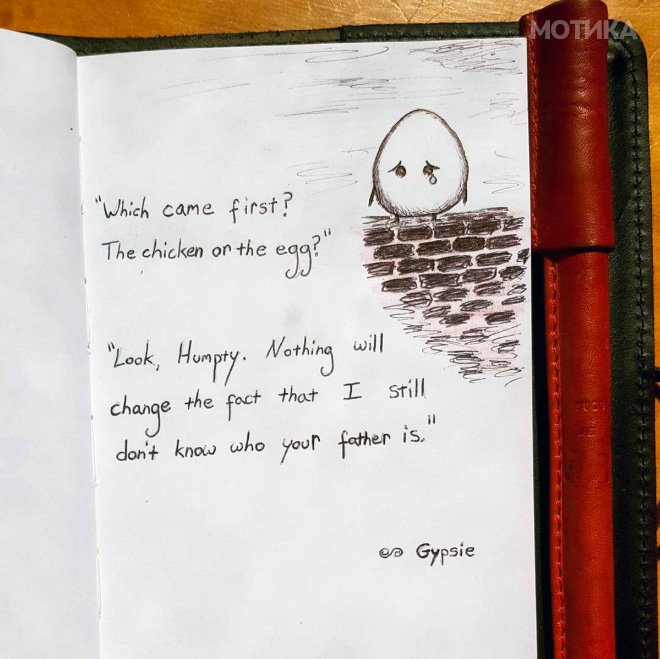 МОТИКА
"Which came first?
The chicken or the egg?"
"Look, Humpty. Nothing will
change the fact that I still
don't know who your father is."
Gypsie